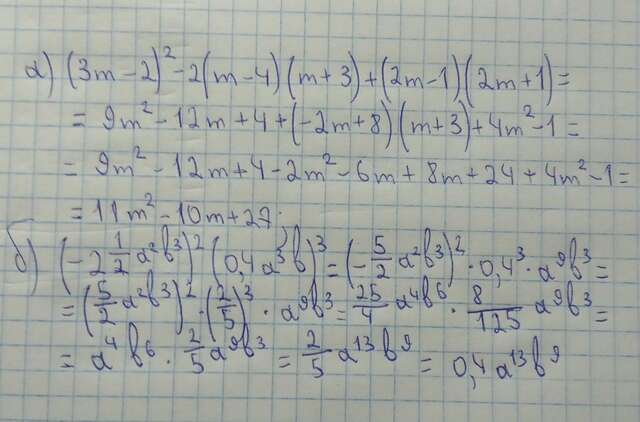 а) (3m-2)²-2(m-4)(m+3)+(2m-1)(2m+1)=
= 9m²-12m+4+(-2m+8)(m+3)+4m²-1=
= 9m²-12m+4-2m²-6m+8m+24+4m²-1=
= 11m²-10m+27;
б) (-2 1/2 a²b³)² (0,4a³b)³ = (-5/2 a²b³)² · 0,4³ · a⁹b³ =
= (5/2 a²b³)² · (2/5)³ · a⁹b³ = 25/4 a⁴b⁶ · 8/125 a⁹b³ =
= a⁴b⁶ · 2/5 a⁹b³ = 2/5 a¹³b⁹ = 0,4a¹³b⁹